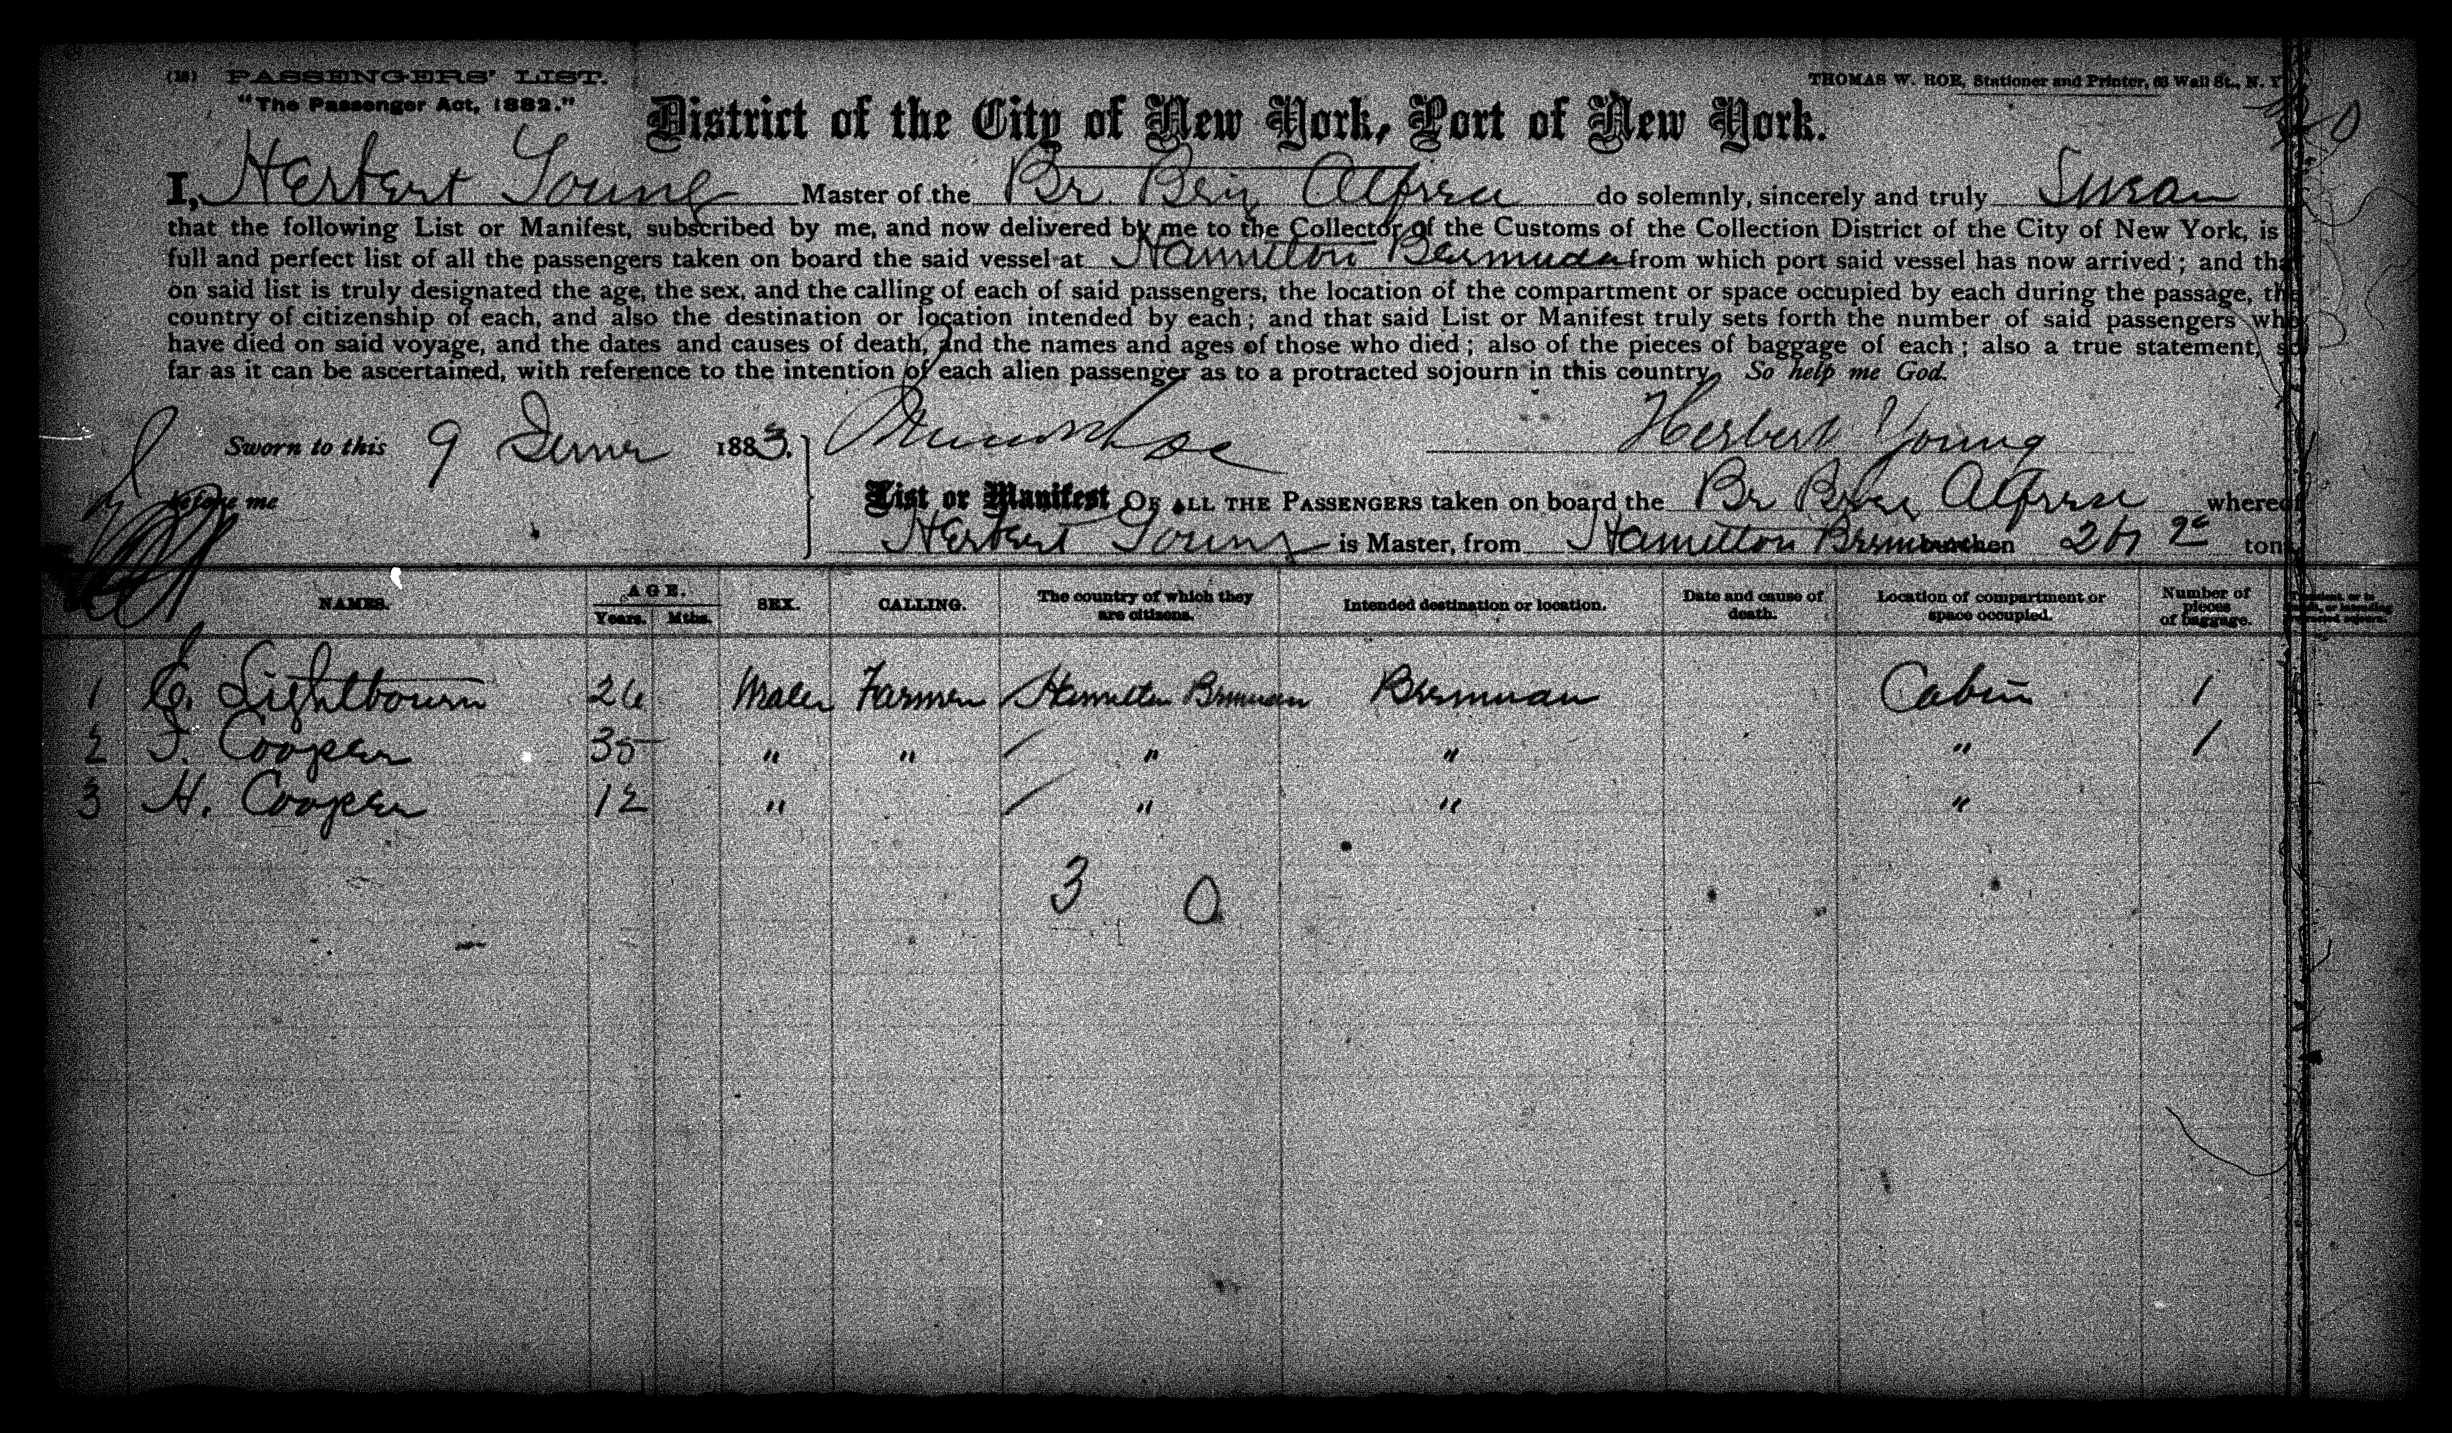 (18) PASSENGERS' LIST.
THOMAS W. ROE, Stationer and Printer, 63 Wall St., N. Y
"The Passenger Act, 1882."
District of the City of New York, Port of New York.
I, Herbert Young Master of the Br. Brig Alfred do solemnly, sincerely and truly Swear
that the following List or Manifest, subscribed by me, and now delivered by me to the Collector of the Customs of the Collection District of the City of New York, is
full and perfect list of all the passengers taken on board the said vessel at Hamilton Bermuda from which port said vessel has now arrived; and that
on said list is truly designated the age, the sex, and the calling of each of said passengers, the location of the compartment or space occupied by each during the passage, the
country of citizenship of each, and also the destination or location intended by each; and that said List or Manifest truly sets forth the number of said passengers who
have died on said voyage, and the dates and causes of death, and the names and ages of those who died; also of the pieces of baggage of each; also a true statement, so
far as it can be ascertained, with reference to the intention of each alien passenger as to a protracted sojourn in this country. So help me God.
Sworn to this 9 1883. Herbert Young
before me
List or Manifest OF ALL THE PASSENGERS taken on board the Br Brig Alfred whereof
Herbert Young is Master, from Hamilton Bermuda burthen tons
NAMES. AGE. Years. Mths. SEX. CALLING. The country of which they are citizens. Intended destination or location. Date and cause of death. Location of compartment or space occupied. Number of pieces of baggage.
1 C. Lightbourn 26 Male Farmer Hamilton Bermuda Bermuda Cabin 1
2 T. Cooper 35 " " " " " 1
3 H. Cooper 12 " " " "
3 0